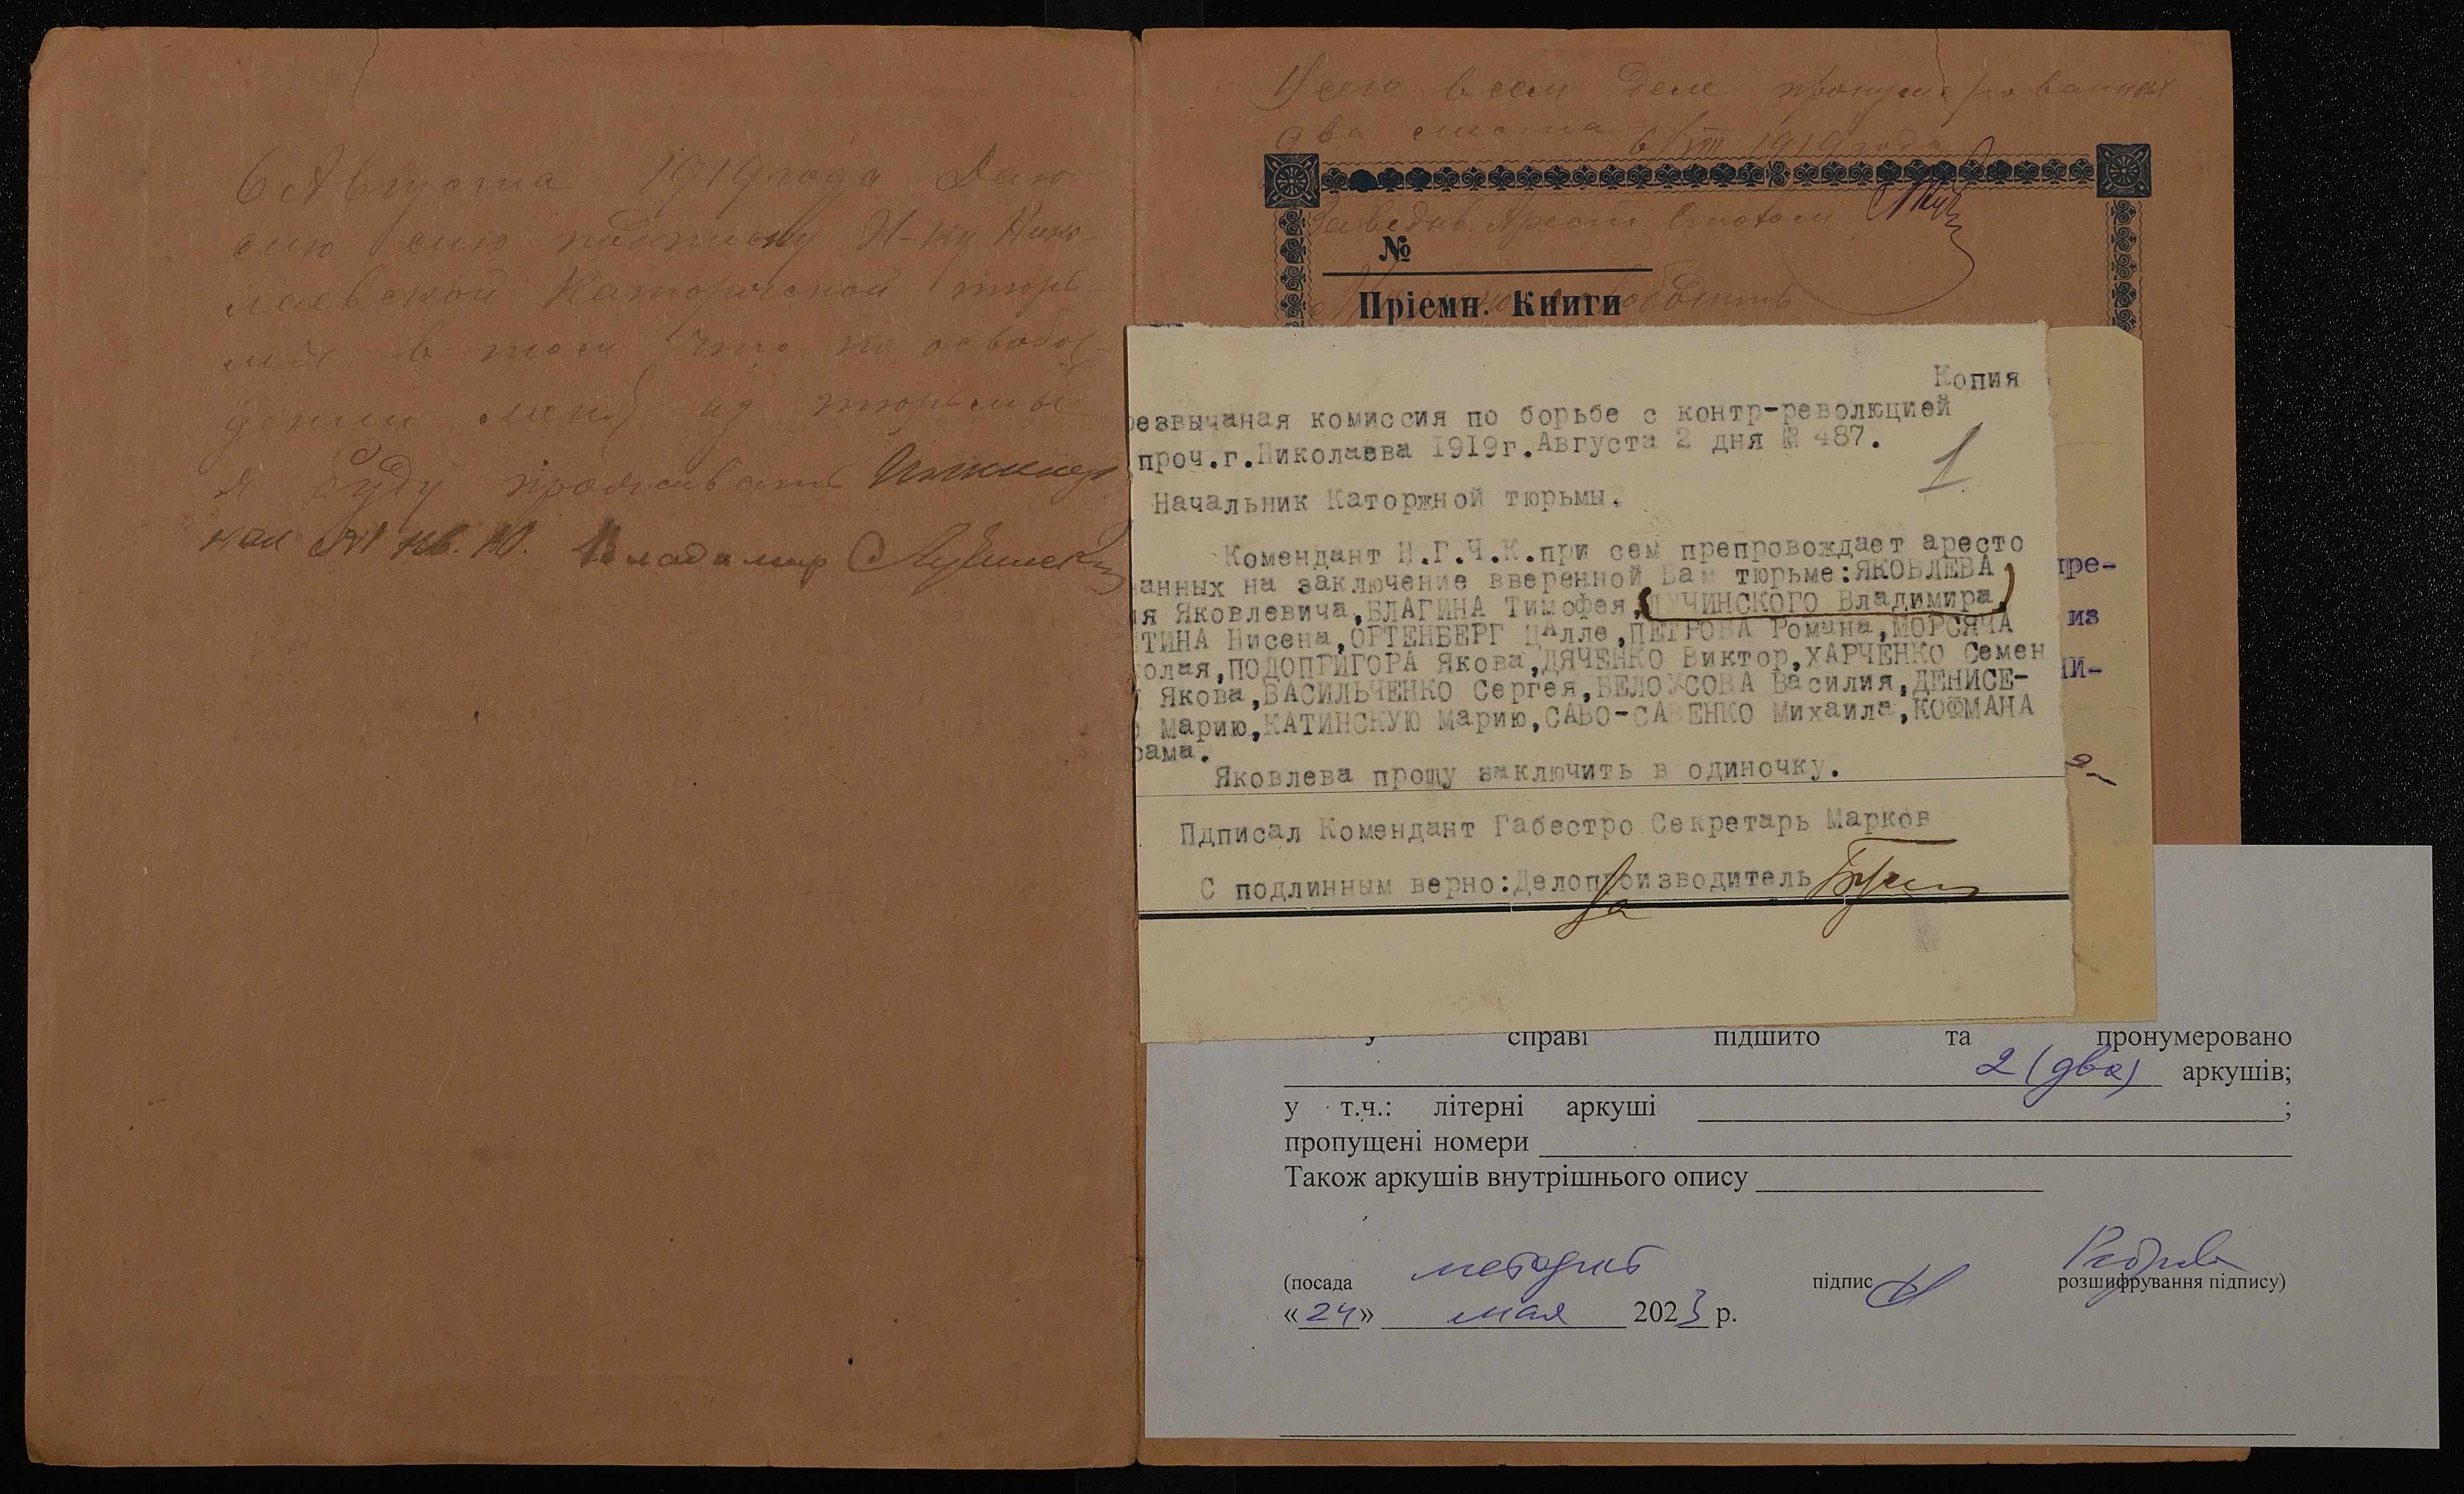 6 Августа 1919 года Даю
сию подписку Н-ку Нико-
лаевской Каторжской тюрь
мы в том что по освобож-
дении меня из тюрьмы
я буду проживать
кая №1 кв. 10. Владимир Лучинский
Всего в сем деле пронумерованных
два листа
6/VIII 1919 года
Заведыв. Арест. Столом
№
Пріемн. Книги
Копия
резвычаная комиссия по борьбе с контр-революцией
проч.г.Николаева 1919г.Августа 2 дня № 487.
1
Начальник Каторжной тюрьмы.
Комендант Н.Г.Ч.К.при сем препровождает аресто
ванных на заключение вверенной Вам тюрьме:ЯКОВЛЕВА
я Яковлевича,БЛАГИНА Тимофея,ЛУЧИНСКОГО Владимира,
ТИНА Нисена,ОРТЕНБЕРГ Цалле,ПЕТРОВА Романа,МОРСЯЧА
олая,ПОДОПРИГОРА Якова,ДЯЧЕНКО Виктор,ХАРЧЕНКО Семен
Якова,ВАСИЛЬЧЕНКО Сергея,БЕЛОУСОВА Василия,ДЕНИСЕ-
Марию,КАТИНСКУЮ Марию,САВО-САВЕНКО Михаила,КОФМАНА
рама.
Яковлева прошу заключить в одиночку.
Пдписал Комендант Габестро Секретарь Марков
С подлинным верно:Делопроизводитель
За
пре-
из
ИИ-
У справі підшито та пронумеровано
2 (два) аркушів;
у т.ч.: літерні аркуші ;
пропущені номери
Також аркушів внутрішнього опису
методист
(посада підпис розшифрування підпису)
«24» мая 2023 р.